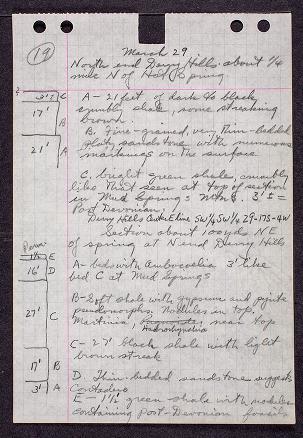 19
March 29
North end Derry Hills about 1/4
mile N of Hot Spring
A - 21 feet of dark to black
crumbly shale, some streaking
brown.
B. Fine-grained, very thin-bedded
platy sandstone with numerous
markings on the surface
C. bright green shale, crumbly
like that seen at top of section
in Mud Springs Mtns. 3' ±
Post Devonian.
Derry Hills Center E line SW 1/4 SW 1/4 29-17S-4W
Section about 100 yds NE
of spring at N end Derry Hills
A - bed with Ambocoelia 3' like
bed C at Mud Springs
B - Soft shale with gypsum and pyrite
pseudomorphs. Nodules in top,
Martinia, near top
C - 27' black shale with light
brown streak
D. Thin-bedded sandstone suggests
Contadero
E - 1 1/2' green shale with nodules
containing Post-Devonian fossils
3' ± C
17' B
21' A
E
16' D
27' C
17' B
3' A